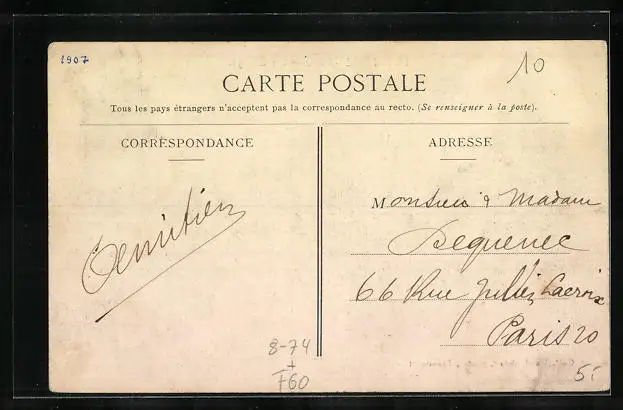 1907
10
CARTE POSTALE
Tous les pays étrangers n'acceptent pas la correspondance au recto. (Se renseigner à la poste).
CORRESPONDANCE
ADRESSE
Monsieur & Madame
66 Rue Julien Lacroix
Paris 20
8-74
+
F60
5